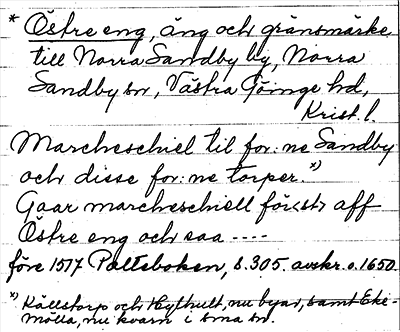 * Östre eng, äng och gränsmärke
till Norra Sandby by, Norra
Sandby sn, Västra Göinge hd,
Krist. l.
Marcheschiel til for:ne Sandby
och disse for:ne torper. x)
Gaar marcheschiell först aff
Östre eng och saa ----
före 1517 Pælteboken, s. 305. avskr. o. 1650.
x) Källstorp och Hylhult, nu byar, samt Eke-
mölla, nu kvarn i sma sn.